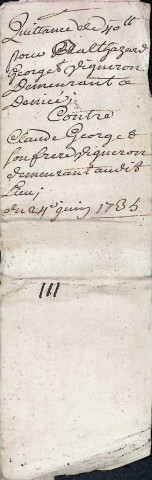 Quittance de 40lt
pour Balthazard
Georges vigneron
Demeurant a
Denicé;
Contre
Claude Georges
son frere vigneron
demeurant audit
Lieu;
du 24e juin 1784
III